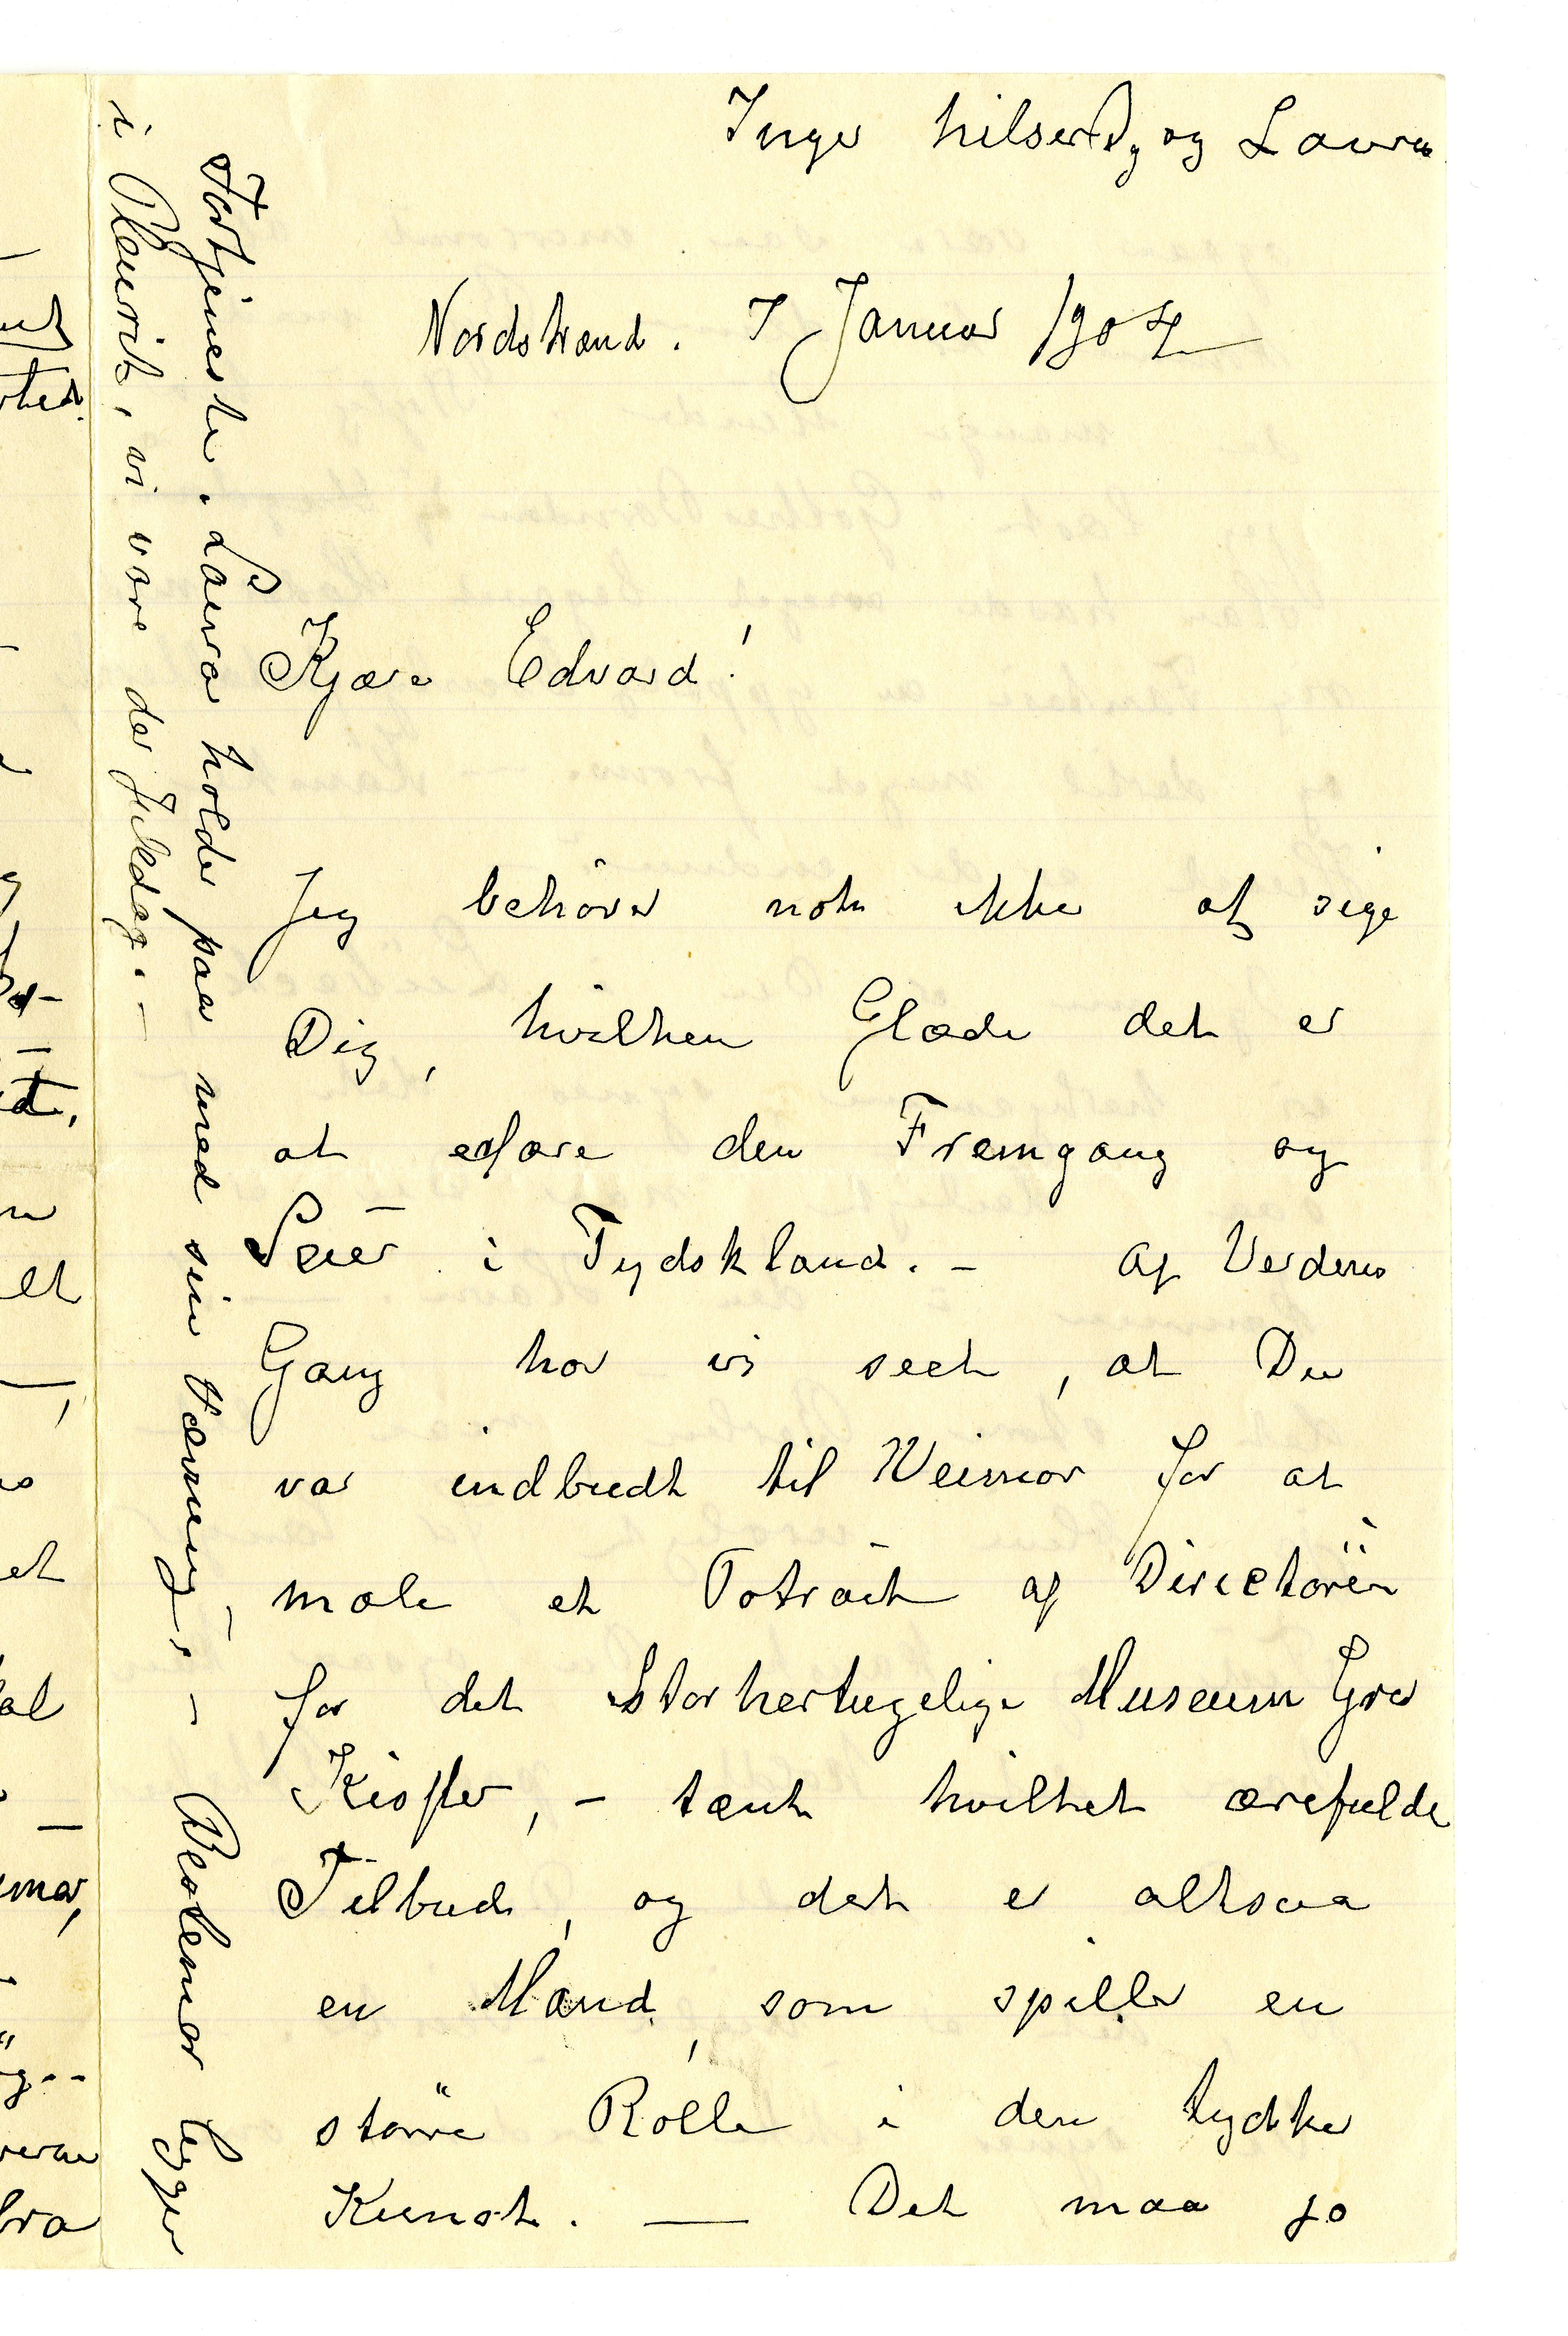 Inger hilser D, og Laura
Nordstrand. 7 Januar 1904
Kjære Edvard!
Jeg behøver nok ikke at sige
Dig, hvilken Glæde det er
at erfare den Fremgang og
Seier i Tydskland. – Af Verdens
Gang har vi seet, at Du
var indbudt til Weimar for at
male et Poträit af Directören
for det Storhertugelige Museum Grev
Kessler, – tænk hvilket ærefulde
Tilbud, og det er altsaa
en Mand, som spiller en
större Rolle i den tydske
Kunst. — Det maa jo
Fortjeneste. Laura holder paa med sin Vævning. – Bestemor ligger
i Pleurit, vi vare der Juledag. –